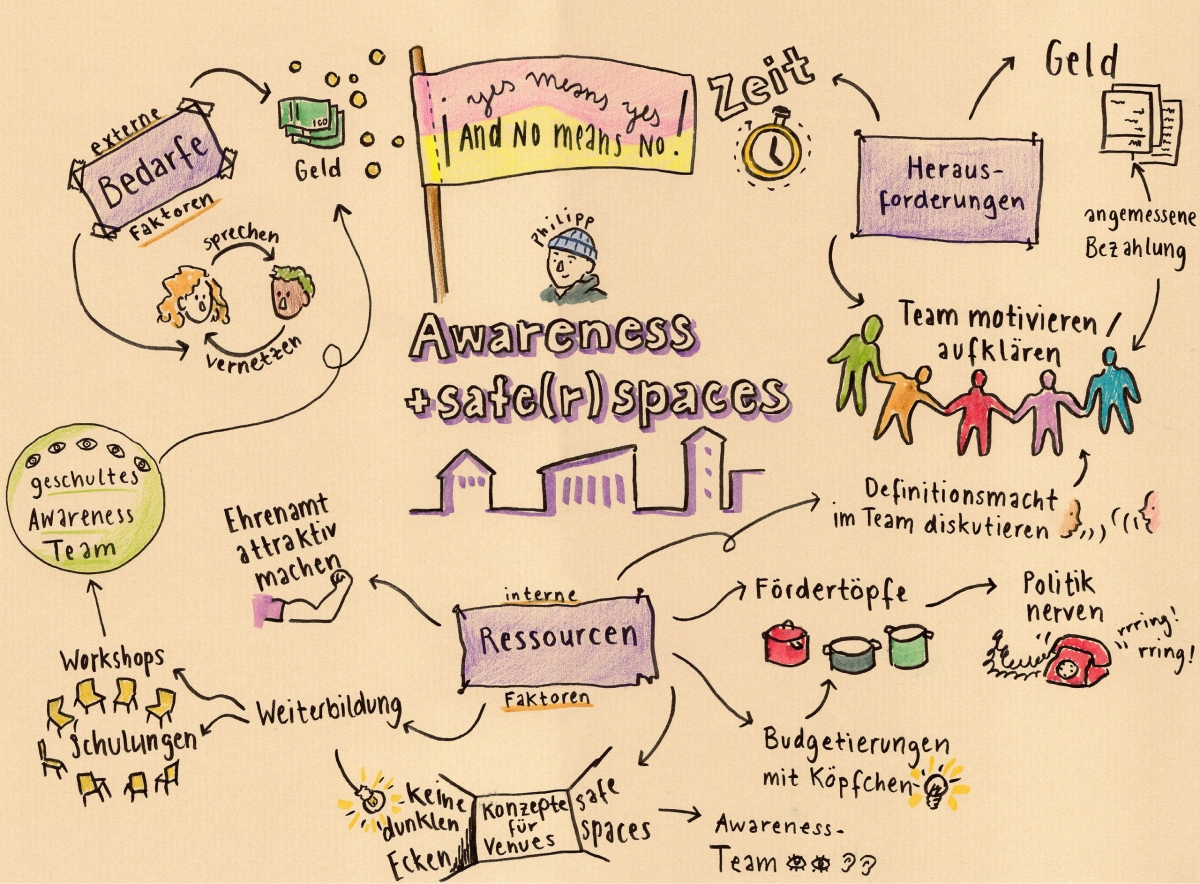 ¡ yes means yes
And No means No. !
Zeit
Geld
externe
Bedarfe
Faktoren
Geld
sprechen
vernetzen
Philipp
Awareness
+safe(r) spaces
Heraus-
forderungen
angemessene
Bezahlung
Team motivieren /
aufklären
Definitionsmacht
im Team diskutieren
geschultes
Awareness
Team
Ehrenamt
attraktiv
machen
interne
Ressourcen
Faktoren
Fördertöpfe
Politik
nerven
rrring!
rring!
Workshops
Schulungen
Weiterbildung
Budgetierungen
mit Köpfchen
Keine
dunklen
Ecken
Konzepte
für
Venues
safe
spaces
Awareness-
Team